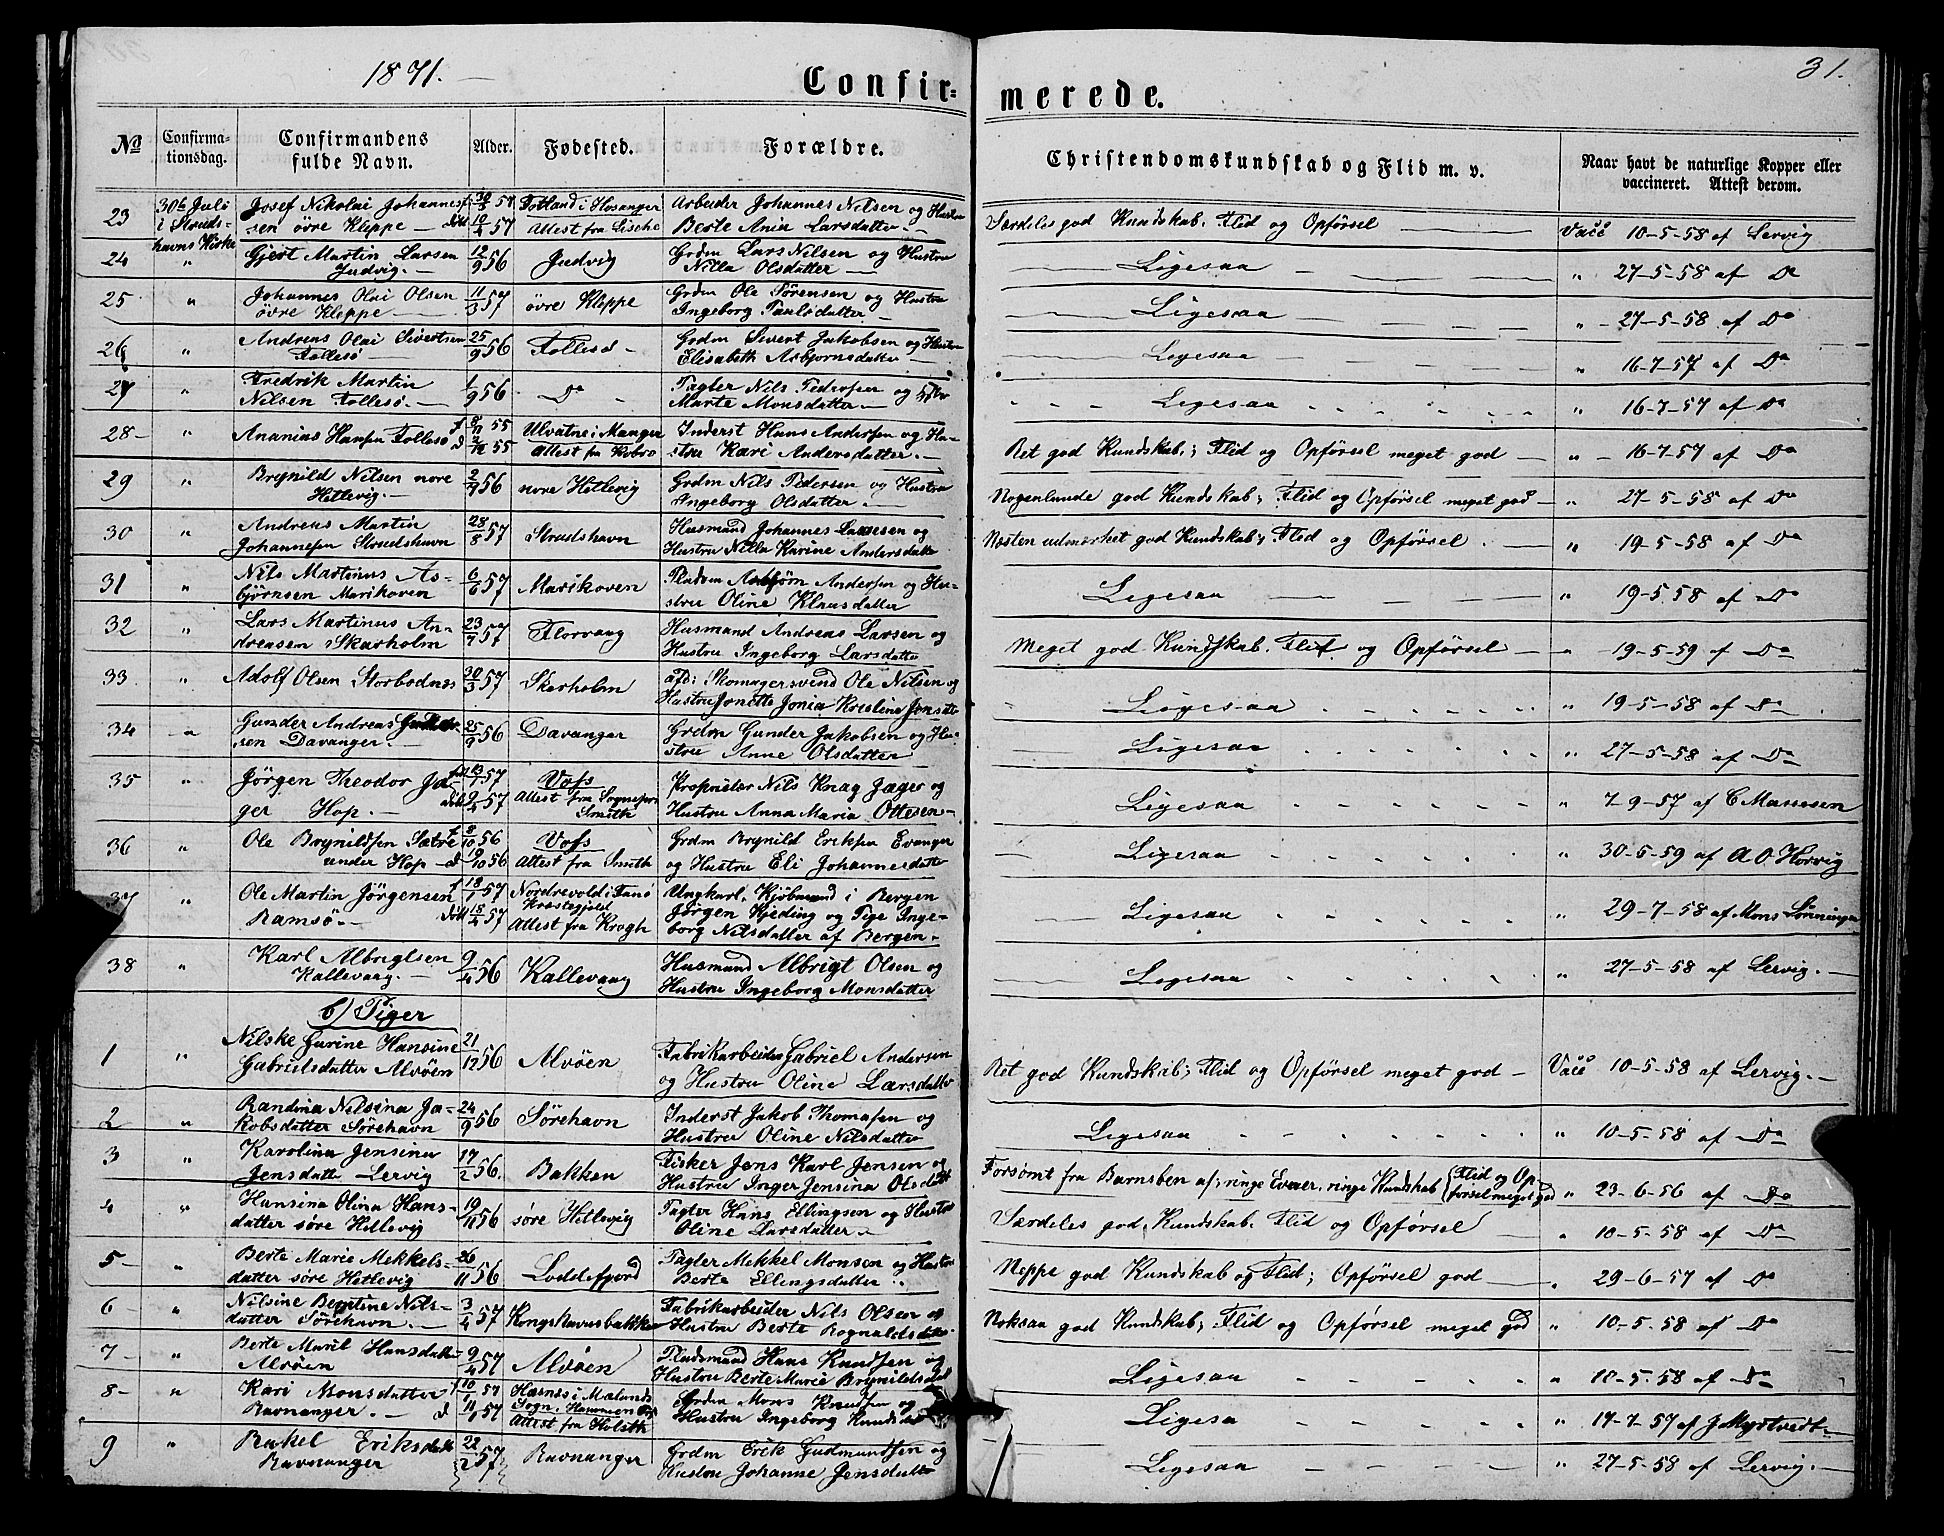 1871. —
31.
Confir-
merede.
No
Confirma-
tionsdag.
Confirmandens
fulde Navn.
Alder.
Fødested.
Forældre.
Christendomskundskab og Flid m. v.
Naar havt de naturlige Kopper eller
vaccineret. Attest derom.
23 30te Juli Josef Nikolai Johannes- 57 i Hosanger Arbeider Johannes Nilsen og Hustru
i Strudshavns Kirke sen övre Kleppe — 57 Attest fra Berte Ania Larsdatter Særdeles god Kundskab, Flid og Opförsel — Vacc 10-5-58 af Lervig
24 " Gjert Martin Larsen 12/9 56 Judvig Grdm Lars Nilsen og Hustru
Judvig. — Nilla Olsdatter — Ligesaa — " 27-5-58 af Do
25 " Johannes Olai Olsen 11/3 57 övre Kleppe Grdm Ole Sörensen og Hustru
övre Kleppe — Ingeborg Paulsdatter — Ligesaa — " 27-5-58 af Do
26 " Andreas Olai Sivertsen 25/9 56 Follesö — Grdm Sivert Jakobsen og Hustru
Follesö — Elisabeth Asbjornsdatter — Ligesaa — " 16-7-57 af Do
27 " Fredrik Martin 1/9 56 Do Nils Pedersen og
Nilsen Follesö. — Marte Monsdatter — Ligesaa " 16-7-57 af Do
28 " Ananias Hansen Follesö f 55 Ulvatne i Manger Inderst Hans Andersen og Hu-
d 55 Attest fra stru Kari Andersdatter. — Ret god Kundskab; Flid og Opförsel meget god — " 16-7-57 af Do
29 " Brynild Nilsen nore 2/9 56 nore Hetlevig Grdm Nils Pedersen og Hustru
Hetlevig. — Ingeborg Olsdatter. — Nogenlunde god Kundskab; Flid og Opförsel meget god — " 27-5-58 af Do
30 " Andreas Martin 28/8 57 Strudshavn Husmand Johannes Larsen og
Johannesen Strudshavn Hustru Nilla Karine Andersdatter Næsten udmærket god Kundskab; Flid og Opförsel — " 19-5-58 af Do
31 " Nils Martinus As- 6/6 57 Marikoven Asbjörn Andersen og Hu-
björnsen Marikoven stru Oline Klausdatter Ligesaa — " 19-5-58 af Do
32 " Lars Martinus An- 23/7 57 Florvaag Husmand Andreas Larsen og
dreasen Skarholm Hustru Ingeborg Larsdatter Meget god Kundskab, Flid og Opförsel — " 19-5-59 af Do
33 " Adolf Olsen Storbodnæs 20/3 57 Skarholm afd: Skomagersvend Ole Nilsen og
Hustru Jonette Jonia Kristine Ligesaa " 19-5-58 af Do
34 " Gunder Andreas 25/9 56 Davanger Grdm Gunder Jakobsen og Hu-
sen Davanger. — stru Anne Olsdatter Ligesaa " 27-5-58 af Do
35 " Jörgen Theodor Jæ- 57 Voss Proprietær Nils Knag Jæger og
ger Hop. — 57 Attest fra Sognepr. Smith Hustru Anna Maria Ottesen — Ligesaa " 7-9-57 af C Massesen
36 " Ole Brynildsen Sætre f 8/10 56 Voss Grdm Brynild Eriksen Evanger
under Hop — d 56 Attest fra Smith og Hustru Eli Johannesdatter — Ligesaa " 30-5-59 af A O Horvig
37 " Ole Martin Jörgensen f 18/1 57 Nordrevold i Fanö Ungkarl, Kjöbmand i Bergen
Ramsö. — 57 Præstegjeld Attest fra Krogh Jörgen Hjeding og Pige Inge-
borg Nilsdatter af Bergen. Ligesaa " 29-7-58 af Mons Lönningen
38 " Karl Albrigtsen 9/4 56 Kallevaag Husmand Albrigt Olsen og
Kallevaag. — Hustru Ingeborg Monsdatter Ligesaa " 27-5-58 af Lervig. —
b) Piger
1 " Nilske Gurine Hansine 21/12 56 Alvöen Fabrikarbeider Gabriel Andersen
Gabrielsdatter Alvöen og Hustru Oline Larsdatter Ret god Kundskab; Flid og Opförsel meget god — Vacc 10-5-58 af Lervig. —
2 " Randina Nilsina Ja- 24/9 56 Sörehavn Inderst Jakob Thomasen og
kobsdatter Sörehavn Hustru Oline Nilsdatter Ligesaa " 10-5-58 af Do
3 " Karolina Jensina 17/2 56. Bakken Fisker Jens Karl Jensen og
Jensdatter Lervig Hustru Inger Jensina Olsdatter Forsömt fra Barnsben af; ringe Evner, ringe Kundskab (Flid og Op-
försel meget god " 23-6-56 af Do
4 " Hansina Olina Hans- 19/11 56 söre Hetlevig Hans Ellingsen og Hustru
datter söre Hetlevig Oline Larsdatter. Særdeles god Kundskab, Flid og Opförsel " 10-5-58 af Do
5 " Berte Marie Mekkels- 26/11 56 Loddefjord Mekkel Monsen og Hustru
datter söre Hetlevig Berte Ellingsdatter. Neppe god Kundskab og Flid; Opförsel god — " 29-6-57 af Do
6 " Nilsine Bentine Nils- 3/4 57 Kongshavnsbakken Fabrikarbeider Nils Olsen og
datter Sörehavn. — Hustru Berte Rognaldsdatter Noksaa god Kundskab; Flid og Opförsel meget god " 10-5-58 af Do
7 " Berte Marie Hansdatter 9/4 57 Alvöen Pladsmand Hans Knudsen og
Alvöen Hustru Berte Marie Brynildsdatter Ligesaa " 10-5-58 af Do
8 " Kari Monsdatter f 57 Grdm Mons Knudsen og
Ravnanger. — d 57 Sogn, Hammer Attest fra Hustru Ingeborg Knudsdatter Ligesa " 17-7-57 af J Myrtvedt
9 " Rakel Eriksdatter 22/2 57 Ravnanger Grdm Erik Gudmundsen og
Ravnanger Hustru Johanne Jensdatter Ligesaa " 27-5-58 af Lervig. —